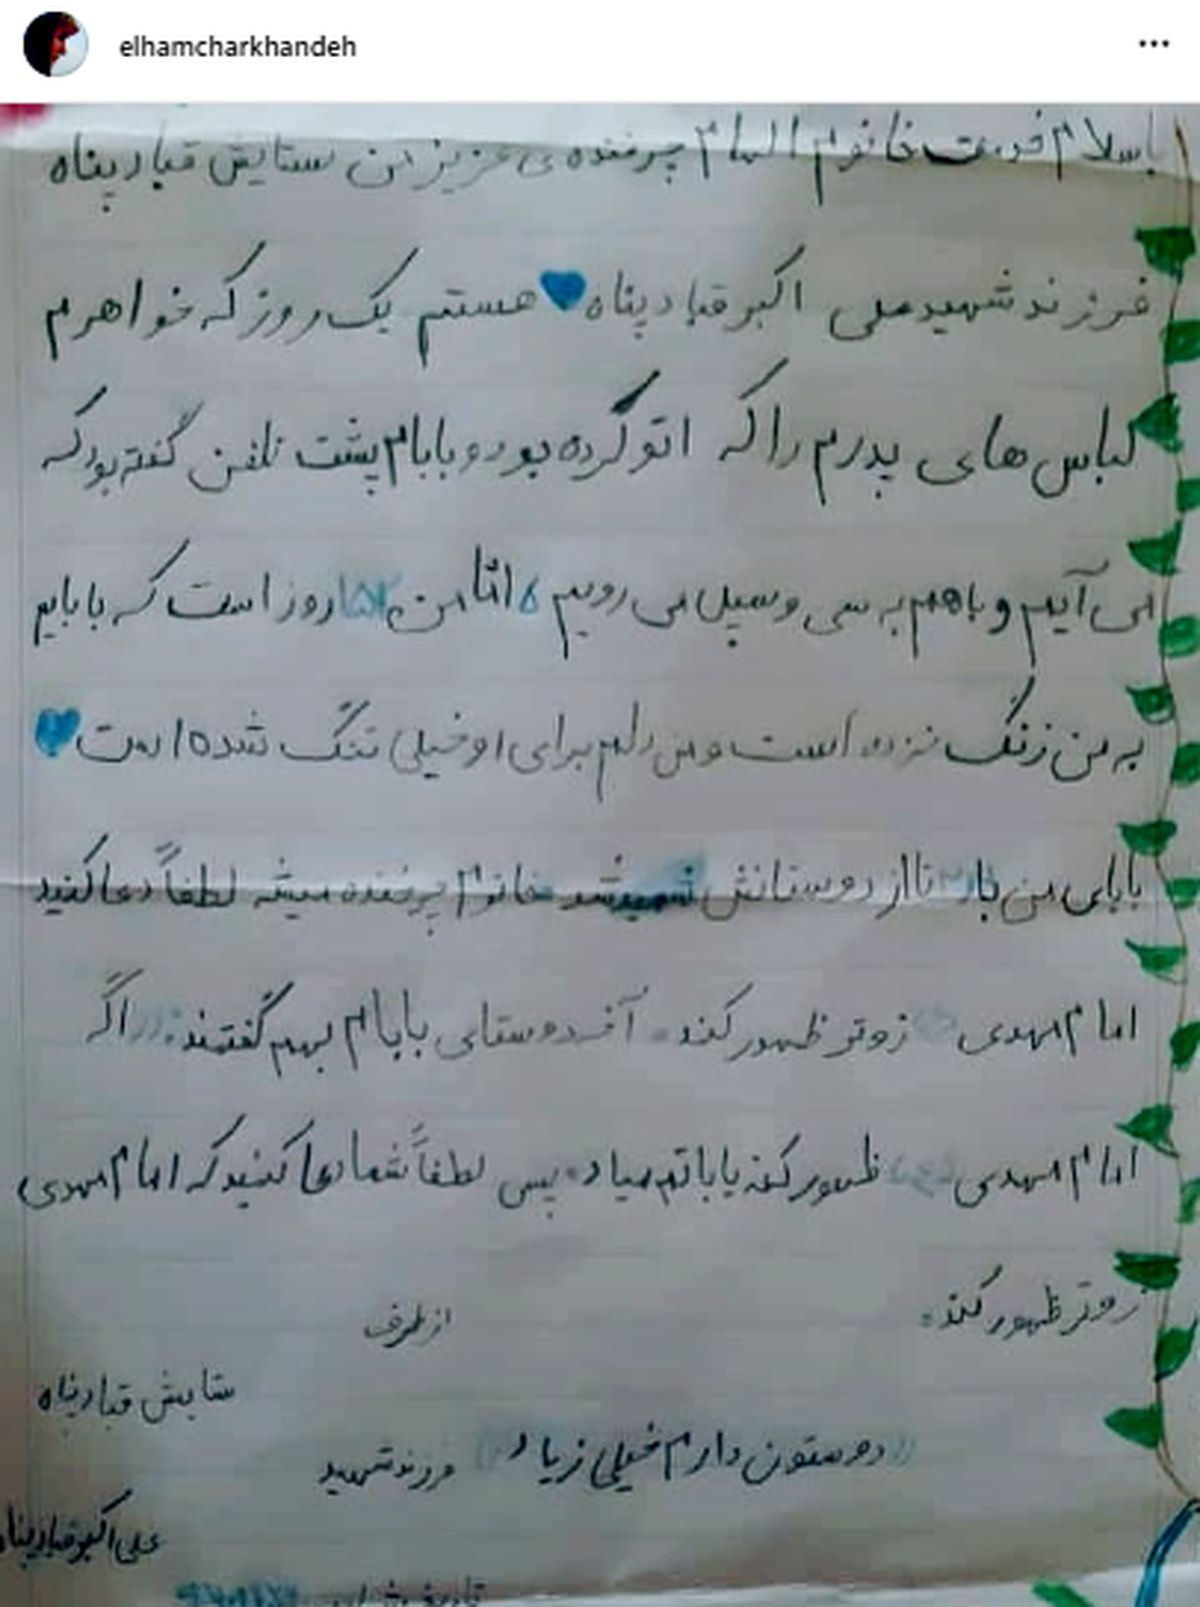 elhamcharkhandeh
باسلام خدمت خانوم الهام چرخنده ی عزیز من ستایش قبادپناه
فرزند شهید علی اکبر قبادپناه هستم یک روز که خواهرم
لباس های پدرم را که اتو کرده بود و بابام پشت تلفن گفته بود که
می آییم و باهم به سی وسپل می رویم اما من روز است که بابایم
به من زنگ نزده است و من دلم برای او خیلی تنگ شده است
بابای من با تا از دوستانش شهید شد خانوم چرخنده میشه لطفاً دعا کنید
امام مهدی زوتر ظهور کند آخه دوستای بابام بهم گفتند اگر
امام مهدی (عج) ظهور کنه باباتم میاد پس لطفاً شما دعا کنید که امام مهدی
زوتر ظهور کند.
از طرف
ستایش قبادپناه
((دوستون دارم خیلی زیاد)) فرزند شهید
علی اکبر قبادپناه